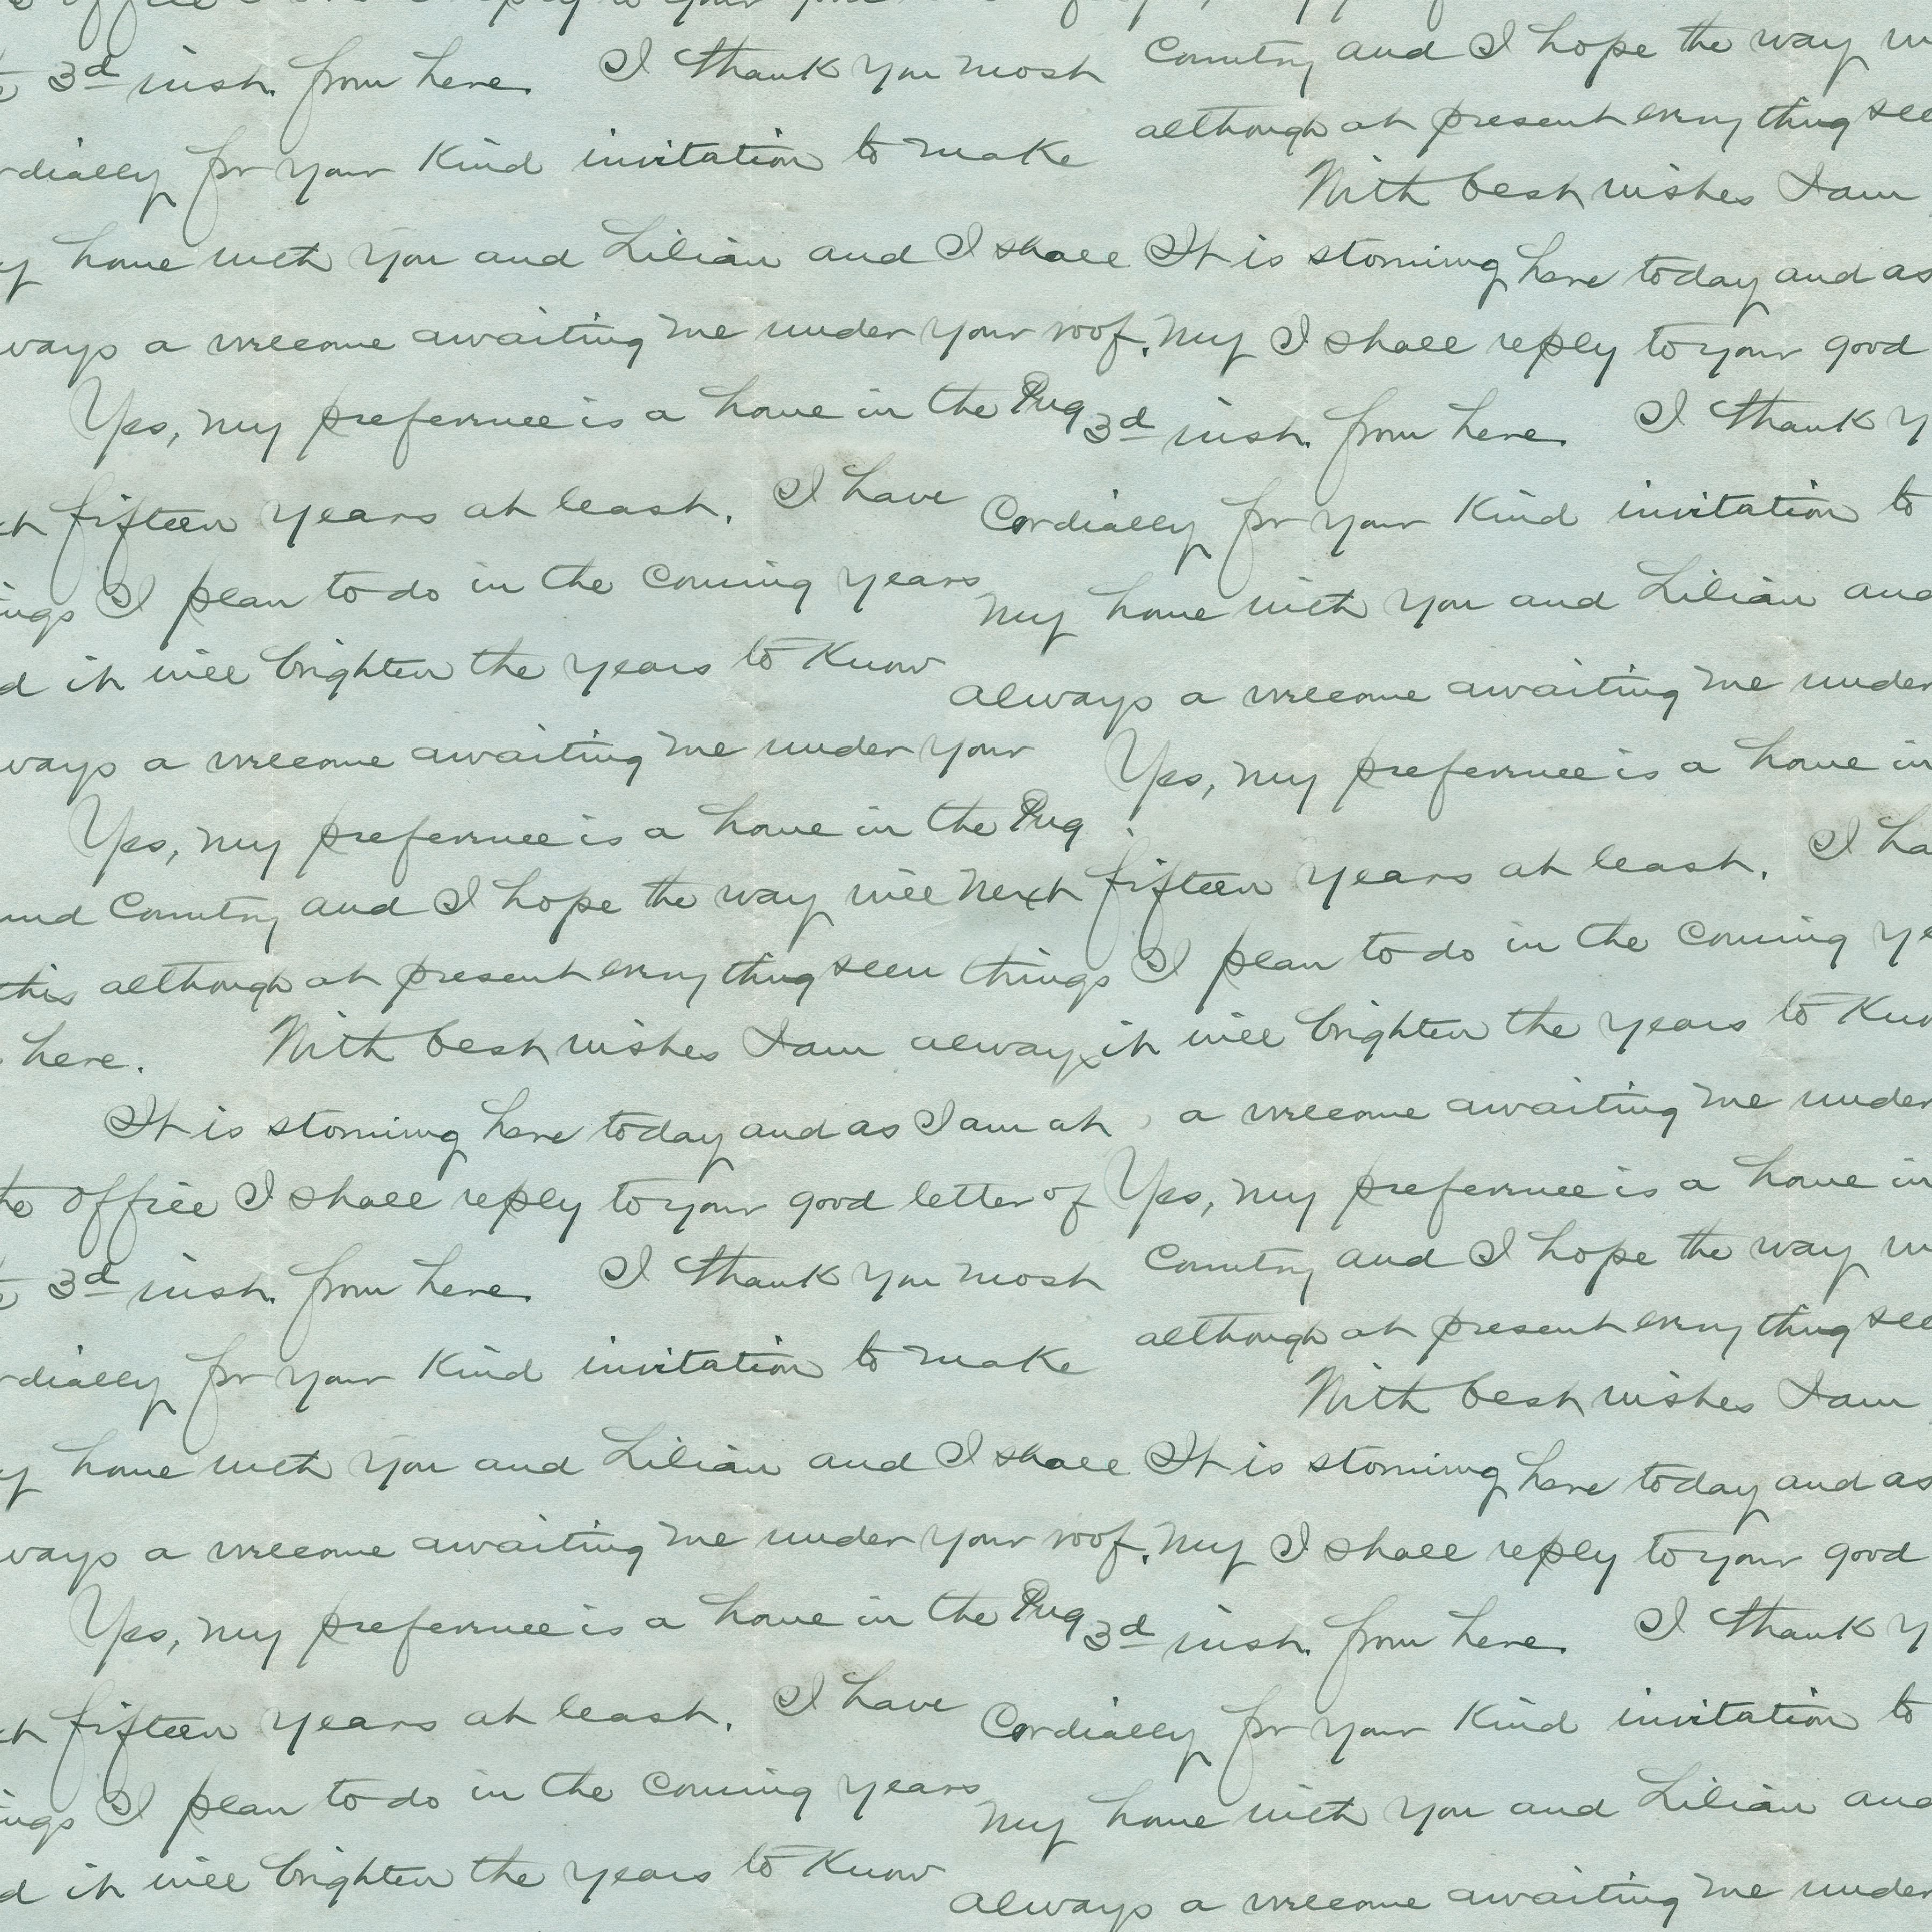 office I shall reply to your good
3d inst. from here. I thank you most Country and I hope the way
for your kind invitation to make although at present everything
With best wishes I am
home with you and Lilian and I shall It is storming here today and as
a welcome awaiting me under your roof. My I shall reply to your good
Yes, my preference is a home in the Pug 3d inst. from here. I thank
fifteen years at least. I have Cordially for your kind invitation to
I plan to do in the coming years My home with you and Lilian and
it will brighten the years to know always a welcome awaiting me under
a welcome awaiting me under your Yes, my preference is a home in
Yes, my preference is a home in the Pug
Country and I hope the way will next fifteen years at least. I
this although at present everything seem things I plan to do in the coming
here. With best wishes I am always it will brighten the years to
It is storming here today and as I am at a welcome awaiting me under
office I shall reply to your good letter of Yes, my preference is a home in
3d inst. from here. I thank you most Country and I hope the way
for your kind invitation to make although at present everything
With best wishes I am
home with you and Lilian and I shall It is storming here today and as
a welcome awaiting me under your roof. My I shall reply to your good
Yes, my preference is a home in the Pug 3d inst. from here. I thank
fifteen years at least. I have Cordially for your kind invitation to
I plan to do in the coming years My home with you and Lilian and
it will brighten the years to know always a welcome awaiting me under